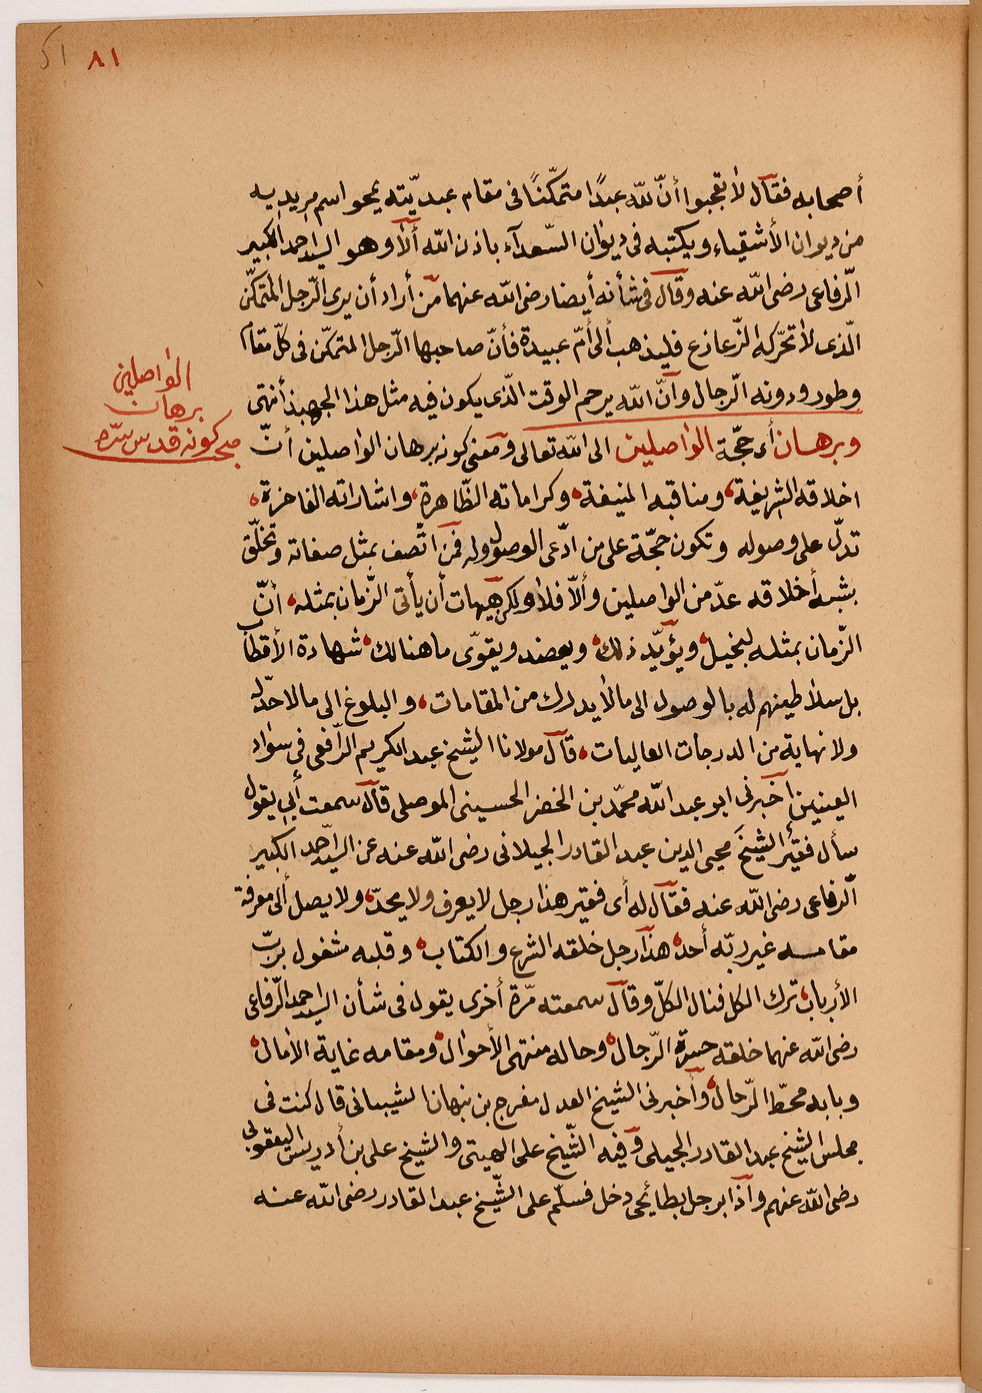 ٨١ ٥١
أصحابه فقال لا تعجبوا أنّ للّه عبدًا متمكّنًا فى مقام عبديّته يمحو اسم مريديه
من ديوان الأشقياء ويكتبه فى ديوان السّعدآء باذن اللّه ألا وهو السيد احمد الكبير
الرّفاعى رضى اللّه عنه وقال فى شأنه أيضا رضى اللّه عنهما من أراد أن يرى الرّجل المتمكّن
الّذى لا تحرّكه الزّعازع فليذهب ألى أمّ عبيدة فأنّ صاحبها الرّجل المتمكّن فى كلّ مقام
وطور ودونه الرّجال وأنّ اللّه يرحم الوقت الّذى يكون فيه مثل هذا الجهبذ أنتهى
وبرهان أى حجّة الواصلين الى اللّه تعالى ومعنى كونه برهان الواصلين أنّ
اخلاقه الشريفة، ومناقبه المنيفة، وكراماته الظّاهرة، واشاراته الفاخرة،
تدلّ على وصوله وتكون حجّة على من ادّعى الوصول وله فمن اتّصف بمثل صفاته وتخلّق
بشبه أخلاقه عدّ من الواصلين وألّا فلا ولكن هيهات أن يأتى الزّمان بمثله، أنّ
الزّمان بمثله لبخيل، ويؤيّد ذلك، ويعضد ويقوّى ما هنالك، شهادة الأقطاب
بل سلاطينهم له بالوصول الى ما لا يدرك من المقامات، والبلوغ الى ما لا حدّ له
ولا نهاية من الدرجات العاليات، قال مولانا الشيخ عبد الكريم الرّافعى فى سواد
العينين أخبرنى ابو عبد اللّه محمّد بن الخضر الحسينى الموصلى قال سمعت أبى يقول
سأل فقير الشيخ محيى الدين عبد القادر الجيلانى رضى اللّه عنه عن السيد احمد الكبير
الرّفاعى رضى اللّه عنه فقال له أى فقير هذا رجل لا يعرف ولا يحدّ، ولا يصل ألى معرفة
مقامه غير ربّه أحد، هذا رجل خلقه الشرع والكتاب، وقلبه مشغول بربّ
الأرباب، ترك الكل فنال الكلّ وقال سمعته مرّة أخرى يقول فى شأن السيد احمد الرّفاعى
رضى اللّه عنهما خلقه حسرة الرّجال، وحاله منتهى الأحوال، ومقامه غاية الأمال،
وبابه محطّ الرّحال، وأخبرنى الشيخ العدل مفرج بن نبهان الشيبانى قال كنت فى
مجلس الشيخ عبد القادر الجيلى وفيه الشّيخ على الهيتى والشيخ على بن أدريس اليعقوبى
رضى اللّه عنهم وأذا برجل بطائحى دخل فسلّم على الشّيخ عبد القادر رضى اللّه عنه
الواصلين
برهان
صح كونه قدس سرّه